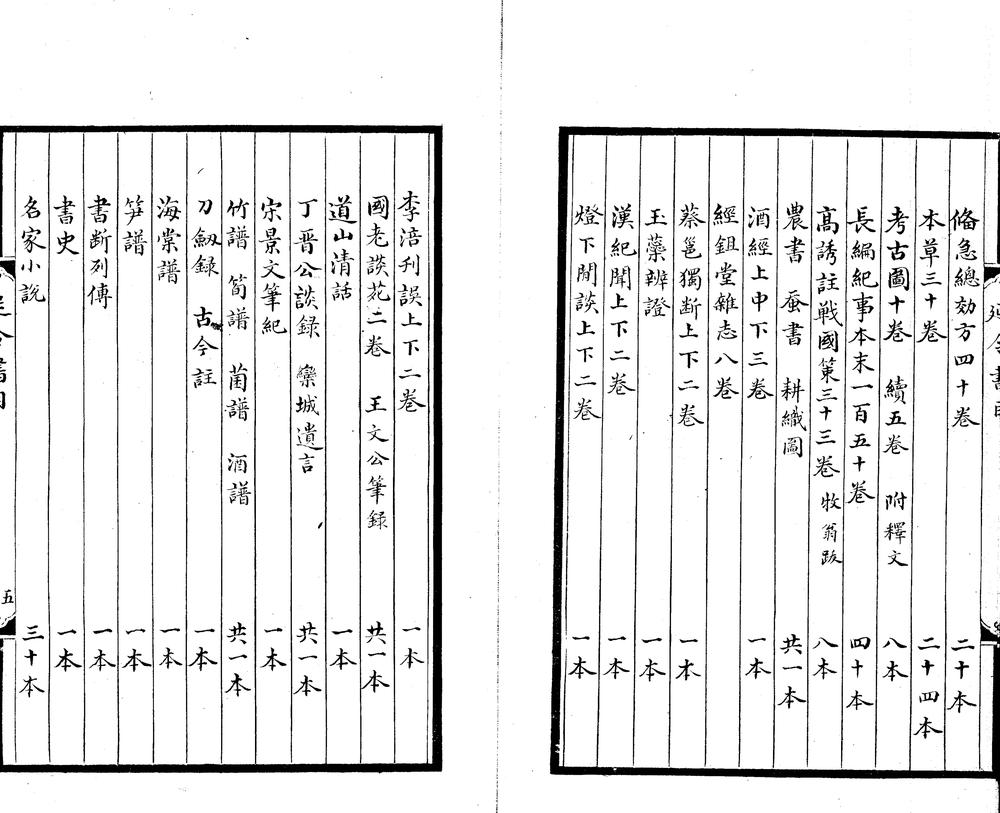 俻急總効方四十卷 二十本
本草三十卷 二十四本
考古圖十卷 續五卷 附釋文 八本
長編紀事本末一百五十卷 四十本
髙誘註戰國策三十三卷 牧翁跋 八本
農書 蚕書 耕織圖 共一本
酒經上中下三卷 一本
經鉏堂雜志八卷
蔡邕獨斷上下二卷 一本
玉蘂辨證 一本
漢紀聞上下二卷 一本
燈下閒談上下二卷 一本
李涪刋誤上下二卷 一本
國老談苑二卷 王文公筆録 共一本
道山清話 一本
丁晋公談録 欒城遺言 共一本
宋景文筆紀 一本
竹譜 筍譜 菌譜 酒譜 共一本
刀劔録 古今註 一本
海棠譜 一本
笋譜 一本
書断列傳 一本
書史 一本
名家小說 三十本
五